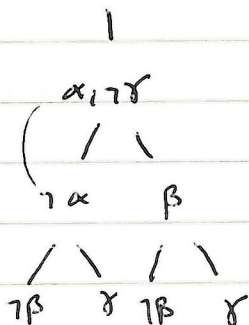 α, ¬γ
¬α β
¬β γ ¬β γ